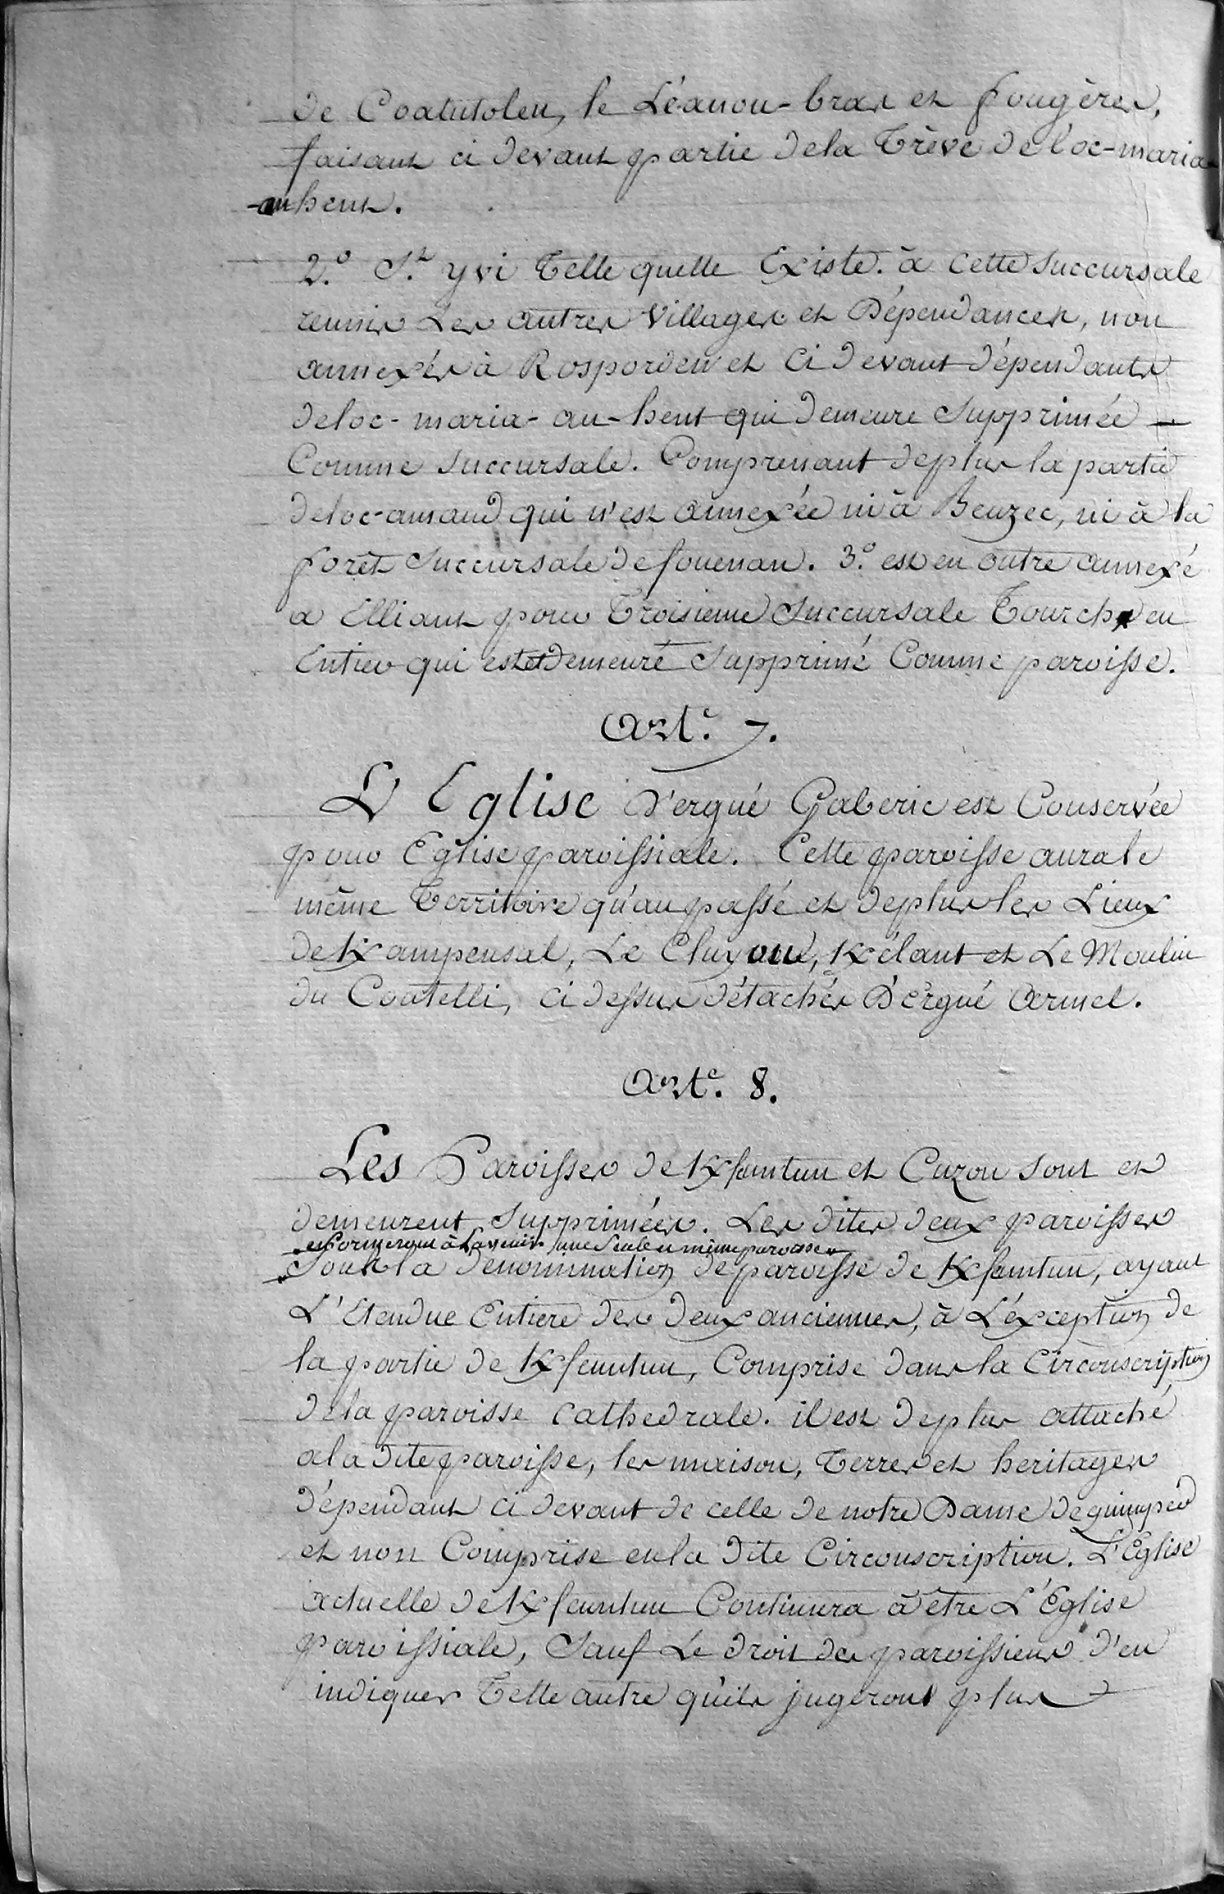 de Coatutolen, le Léanou-bras et fougères,
faisant ci devant partie dela Trève de loc-maria-
-an hent.
2.° S.t yvi Telle quelle Existe. à cette succursale
reunis Les autres Villages et Dépendances, non
annexés à Rosporden et ci devant dépendants
deloc-maria-an-hent qui demeure Supprimée –
Comme succursale. Comprenant deplus la partie
deloc-amand qui n'est annexée ni à Beuzec, ni à la
forêt Succursale de fouenan. 3.° est en outre annexé
a Elliant pour Troisieme Succursale Tourch en
Entier qui est et demeure Supprimé Comme paroisse.
Art.e 7.
L'Eglise D'ergué Gaberic est Conservée
pour Eglise paroissiale. Cette paroisse aura le
même Territoire qu'au passé et deplus les Lieux
de Kampensal, Le Cluyou, Kélant et Le Moulin
du Coutelli, ci dessus détachés D'Ergué Armel.
Art.e 8.
Les Paroisses de Kfeunteun et Cuzon sont et
demeurent Supprimées. Les dites deux paroisses
et formeront à L'avenir une Seule et même paroisse
Sous la denomination de paroisse de Kfeunteun, ayant
L'Etendue Entiere des deux anciennes, à L'éxception de
la partie de Kfeunteun, Comprise dans la Circonscription
dela paroisse Cathedrale. il est deplus attaché
ala dite paroisse, les maison, Terres et heritages
dépendant ci devant de celle de notre Dame de quimper
et non Comprise en la dite Circonscription. L'Eglise
actuelle de Kfeunteun Continuera à être L'Eglise
paroissiale, Sauf Le droit des paroissiens d'en
indiquer Telle autre qu'ils jugeront plus